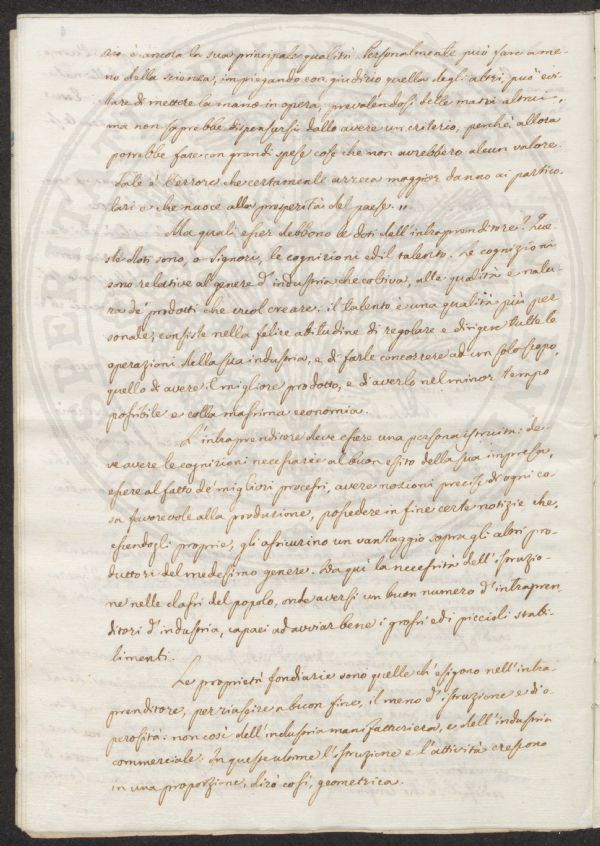 rio è ancora la sua principale qualità. Personalmente può fare a me-
no della scienza, impiegando con giudizio quella degli altri, può evi-
tare di mettere la mano in opera, prevalendosi delle mani altrui,
ma non saprebbe dispensarsi dallo avere un criterio, perché allora
potrebbe fare con grandi spese cose che non avrebbero alcun valore.
Tale è l'errore che certamente arreca maggior danno ai partico-
lari e che nuoce alla prosperità del paese. „
Ma quali esser debbono le doti dell'intraprenditore? Que-
ste doti sono, o Signori, le cognizioni ed il talento. Le cognizioni
sono relative al genere d'industria che coltiva, alle qualità e natu-
ra de' prodotti che vuol creare: il talento è una qualità più per-
sonale; consiste nella felice attitudine di regolare e dirigere tutte le
operazioni della sua industria, e di farle concorrere ad un solo scopo,
quello di avere il migliore prodotto, e d'averlo nel minor tempo
possibile e colla massima economia.
L'intraprenditore deve essere una persona istruita: de-
ve avere le cognizioni necessarie al buon esito della sua impresa,
essere al fatto de' migliori processi, avere nozioni precise di ogni co-
sa favorevole alla produzione, possedere in fine certe notizie che,
essendogli proprie, gli assicurino un vantaggio sopra gli altri pro-
duttori del medesimo genere. Da qui la necessità dell'istruzio-
ne nelle classi del popolo, onde aversi un buon numero d'intrapren-
ditori d'industria, capaci ad avviar bene i grossi ed i piccioli stabi-
limenti.
Le proprietà fondiarie sono quelle ch'esigono nell'intra-
prenditore, per riuscire a buon fine, il meno d'istruzione e d'o-
perosità: non così dell'industria manifatturiera, e dell'industria
commerciale. In queste ultime l'istruzione e l'attività crescono
in una proporzione, dirò così, geometrica.